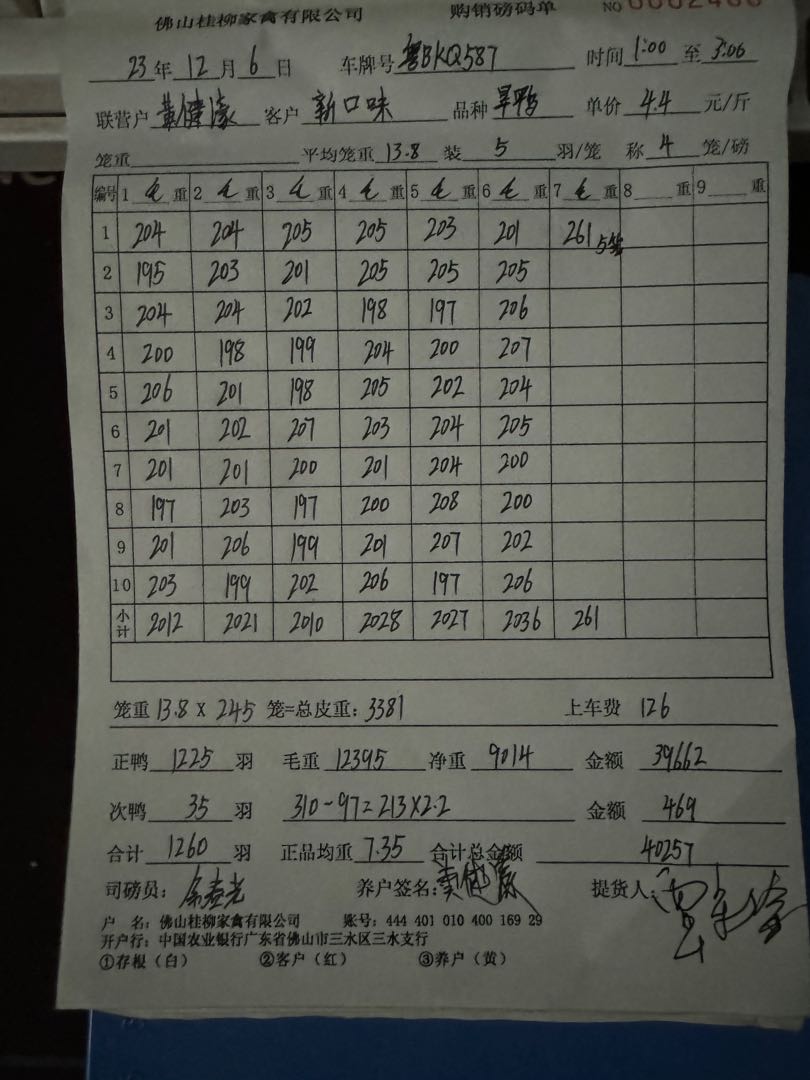 佛山桂柳家禽有限公司 购销磅码单 NO
23年12月6日 车牌号 粤BKQ587 时间 1:00 至 3:06
联营户 黄健濠 客户 新口味 品种 旱鸭 单价 4.4 元/斤
笼重 平均笼重 13.8 装 5 羽/笼 称 4 笼/磅
编号 1 毛 重 2 毛 重 3 毛 重 4 毛 重 5 毛 重 6 毛 重 7 毛 重 8 重 9 重
1 204 204 205 205 203 201 261 5笼
2 195 203 201 205 205 205
3 204 204 202 198 197 206
4 200 198 199 204 200 207
5 206 201 198 205 202 204
6 201 202 207 203 204 205
7 201 201 200 201 204 200
8 197 203 197 200 208 200
9 201 206 199 201 207 202
10 203 199 202 206 197 206
小计 2012 2021 2010 2028 2027 2036 261
笼重 13.8 X 245 笼=总皮重: 3381 上车费 126
正鸭 1225 羽 毛重 12395 净重 9014 金额 39662
次鸭 35 羽 310-97=213×2.2 金额 469
合计 1260 羽 正品均重 7.35 合计总金额 40257
司磅员: 养户签名: 黄健濠 提货人:
户 名: 佛山桂柳家禽有限公司 账号: 444 401 010 400 169 29
开户行: 中国农业银行广东省佛山市三水区三水支行
①存根（白） ②客户（红） ③养户（黄）